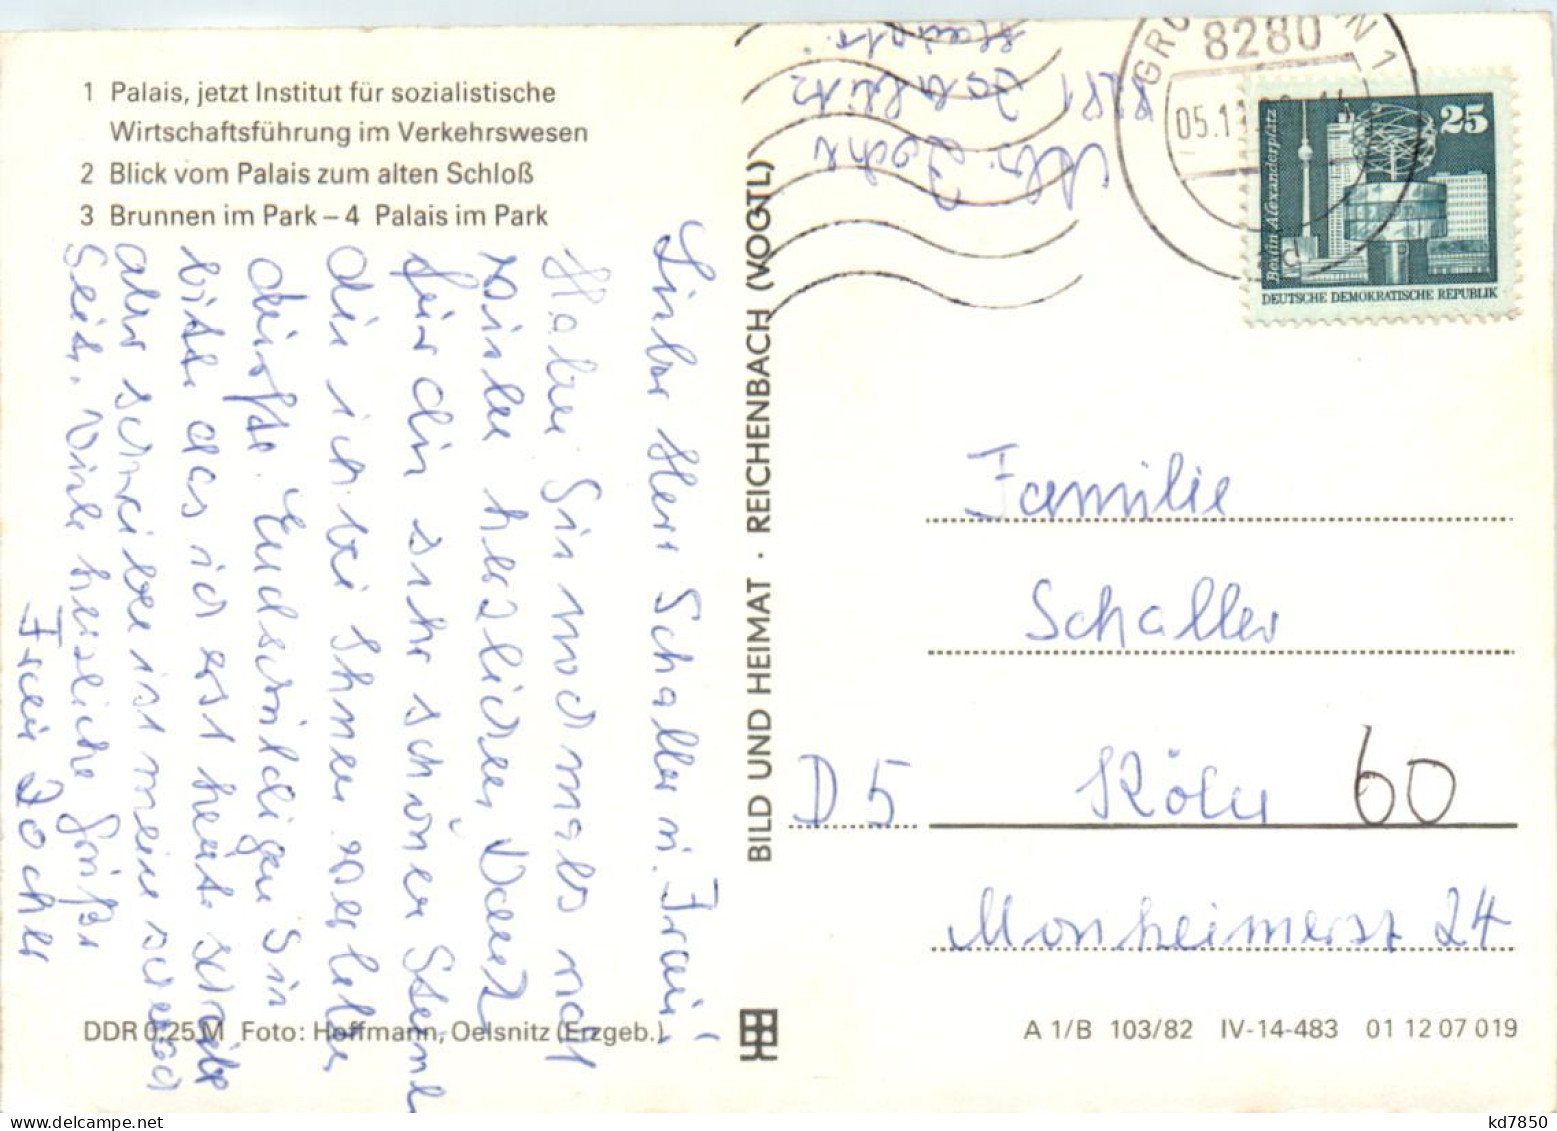 1 Palais, jetzt Institut für sozialistische
Wirtschaftsführung im Verkehrswesen
2 Blick vom Palais zum alten Schloß
3 Brunnen im Park – 4 Palais im Park
Lieber Herr Schaller u. Frau!
Haben Sie nochmals
vielen herzlichen Dank
für die sehr schönen
die ich bei Ihnen verleben
durfte. Entschuldigen Sie
bitte das ich erst heute schreibe
aber schreiben ist meine schwache
Seite. Viele herzliche Grüße
Frau Jocher
DDR 0,25 M Foto: Hoffmann, Oelsnitz (Erzgeb.)
BILD UND HEIMAT · REICHENBACH (VOGTL)
8280
05.11
25
Berlin, Alexanderplatz
DEUTSCHE DEMOKRATISCHE REPUBLIK
Familie
Schaller
D 5 Köln 60
Monheimerst 24
A 1/B 103/82 IV-14-483 01 12 07 019
kd7850